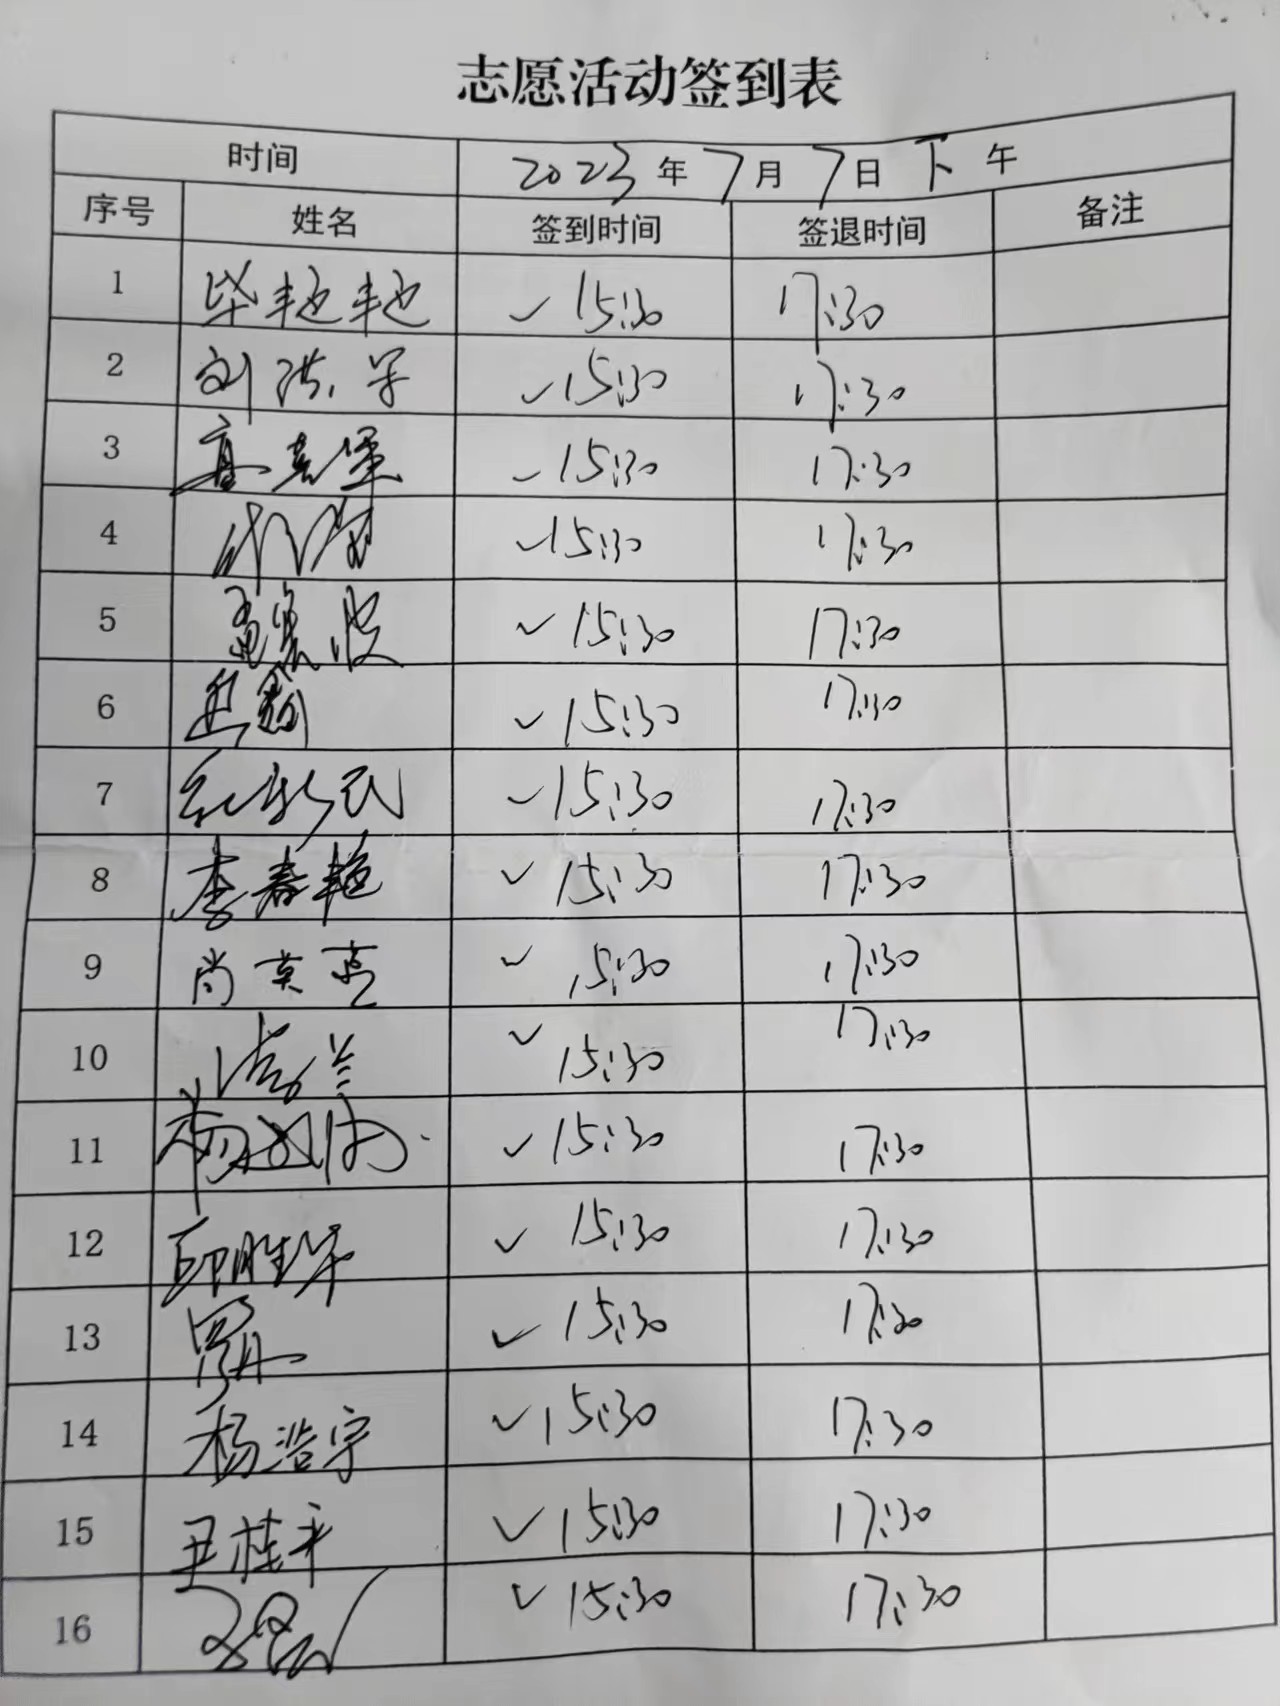 志愿活动签到表
时间 2023年7月7日下午
序号 姓名 签到时间 签退时间 备注
1 毕艳艳 ✓15:30 17:30
2 刘洪 ✓15:30 17:30
3 ✓15:30 17:30
4 ✓15:30 17:30
5 孟宪波 ✓15:30 17:30
6 ✓15:30 17:30
7 红新民 ✓15:30 17:30
8 李春艳 ✓15:30 17:30
9 尚英 ✓15:30 17:30
10 兰 ✓15:30 17:30
11 杨 ✓15:30 17:30
12 印胜华 ✓15:30 17:30
13 罗丹 ✓15:30 17:30
14 杨浩宇 ✓15:30 17:30
15 尹桂平 ✓15:30 17:30
16 ✓15:30 17:30